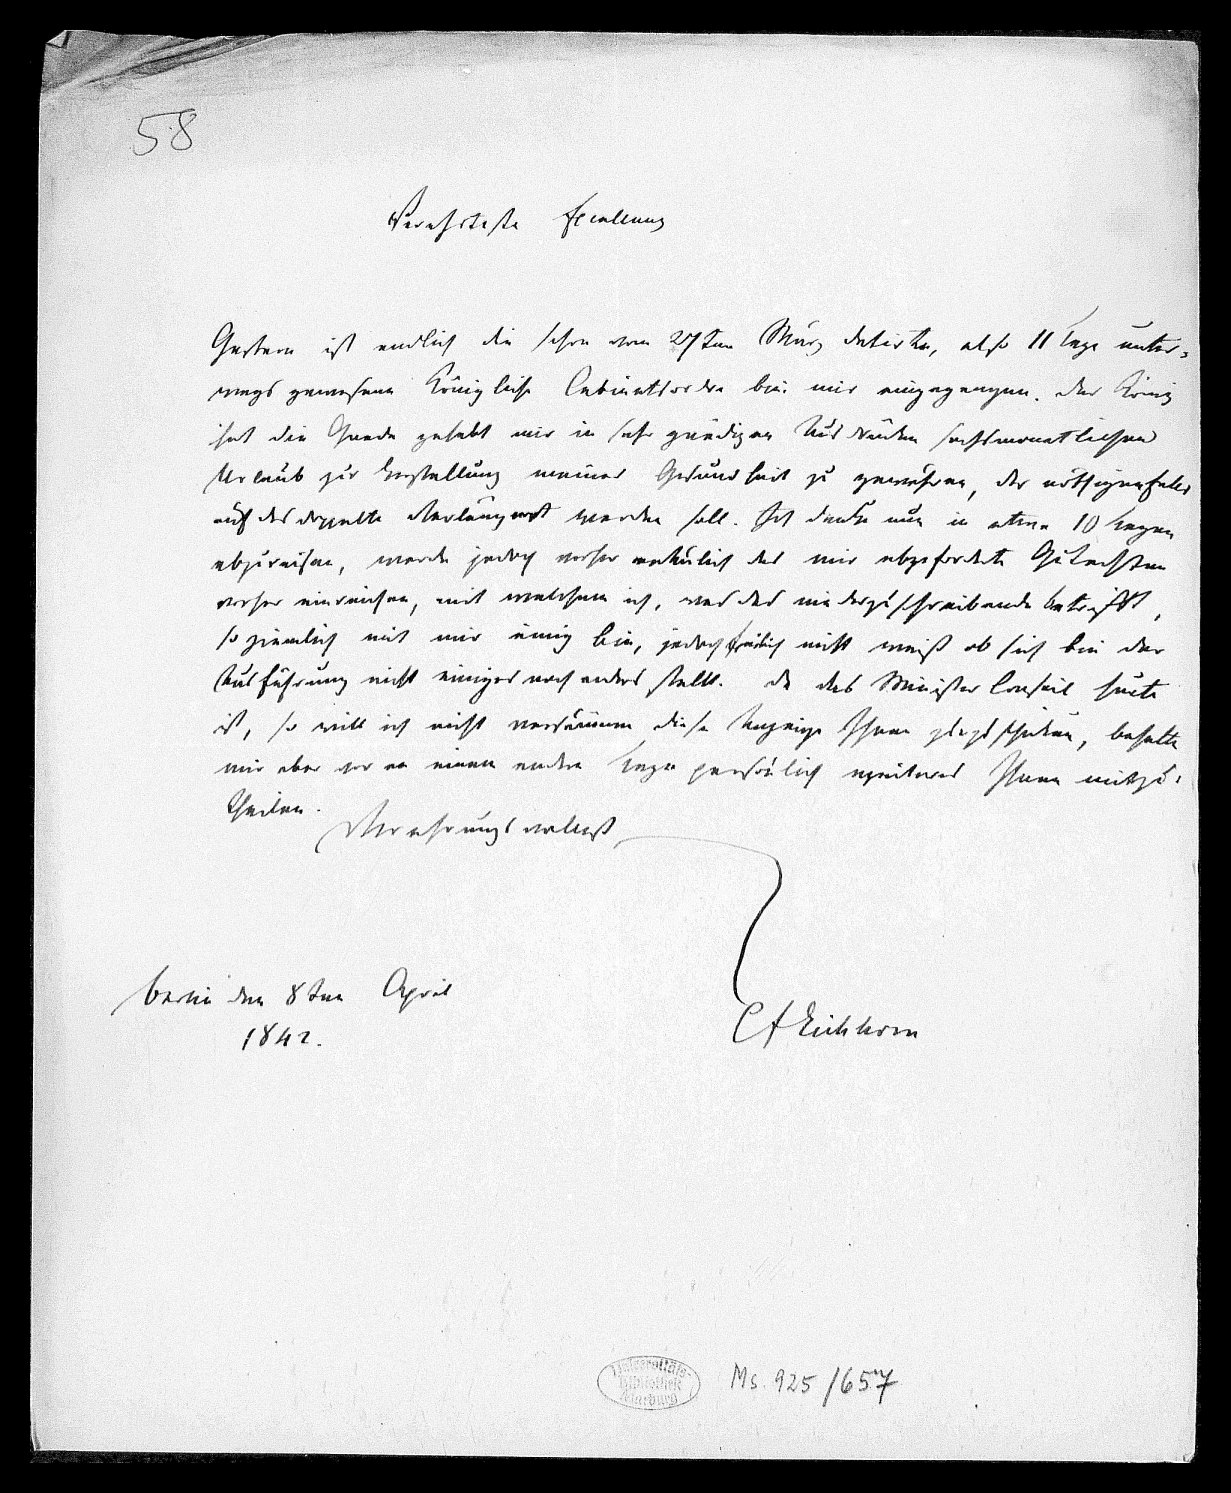 58
Verehrteste Excellenz
Gestern ist endlich die schon vom 27ten März datirte, also 11 Tage unter-
wegs gewesene Königliche Cabinetsordre bei mir eingegangen. Der König
hat die Gnade gehabt mir in sehr gnädigen Ausdrücken sechsmonatlichen
Urlaub zur Herstellung meiner Gesundheit zu gewähren, der nöthigenfalls
auf das doppelte verlängert werden soll. Ich denke nun in etwa 10 Tagen
abzureisen, werde jedoch vorher natürlich das mir abgeforderte Gutachten
vorher einreichen, mit welchem ich, was das niederzuschreibende betrifft,
so ziemlich mit mir einig bin, jedoch freilich nicht weiß ob sich bei der
Ausführung nicht einiges noch anders stellt. Da das Minister Conseil heute
ist, so will ich nicht versäumen diese Anzeige Ihnen zuzuschicken, behalte
mir aber vor an einem andern Tage persönlich Ihnen mitzu-
theilen.
Verehrungsvollst
Berlin den 8ten April
1842.
CF Eichhorn
Universitäts-
bibliothek
Marburg
Ms. 925/657